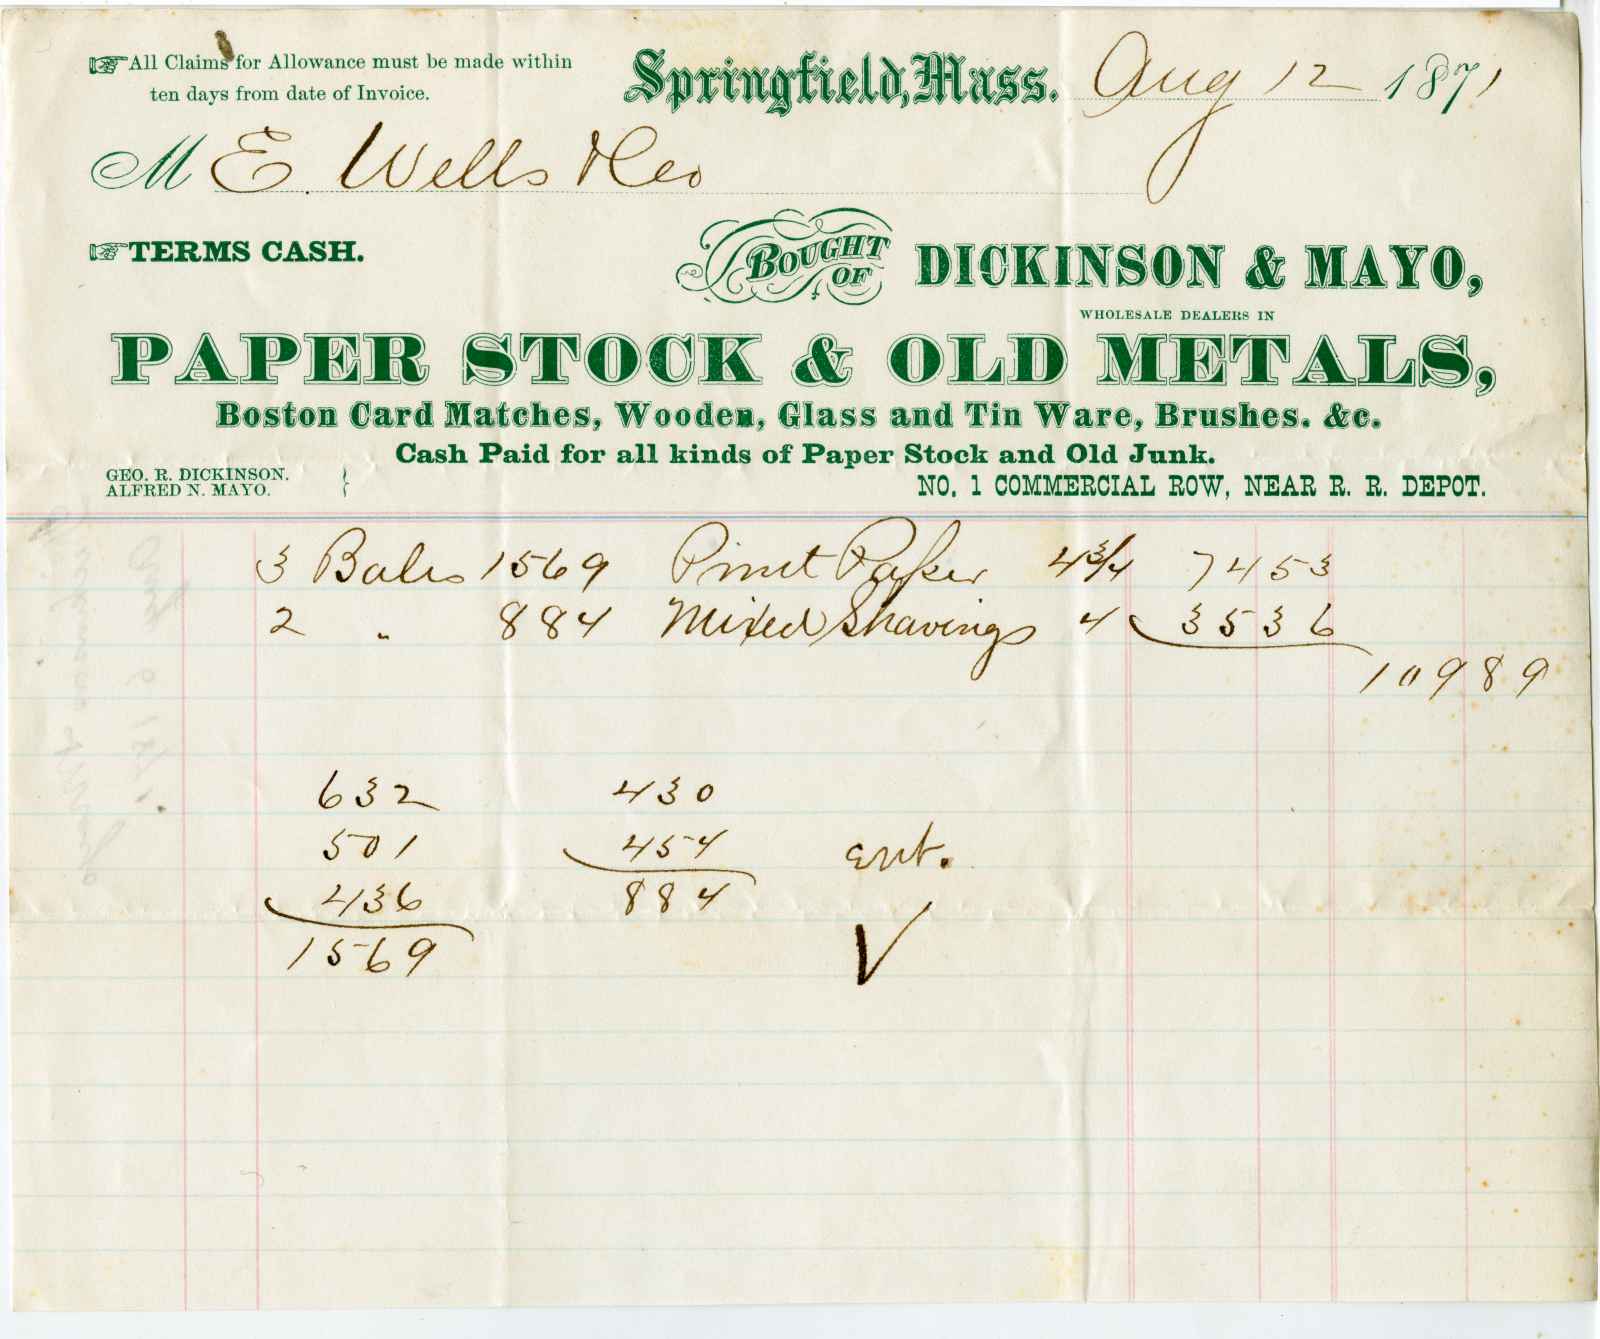 All Claims for Allowance must be made within
ten days from date of Invoice.
Springfield, Mass. Aug 12 1871
M E. Wells & Co
TERMS CASH.
BOUGHT OF DICKINSON & MAYO,
WHOLESALE DEALERS IN
PAPER STOCK & OLD METALS,
Boston Card Matches, Wooden, Glass and Tin Ware, Brushes. &c.
Cash Paid for all kinds of Paper Stock and Old Junk.
GEO. R. DICKINSON.
ALFRED N. MAYO.
NO. 1 COMMERCIAL ROW, NEAR R. R. DEPOT.
3 Bales 1569 Print Paper 4 3/4 7453
2 " 884 Mixed Shavings 4 3536
10989
632 430
501 454 ent.
436 884
1569